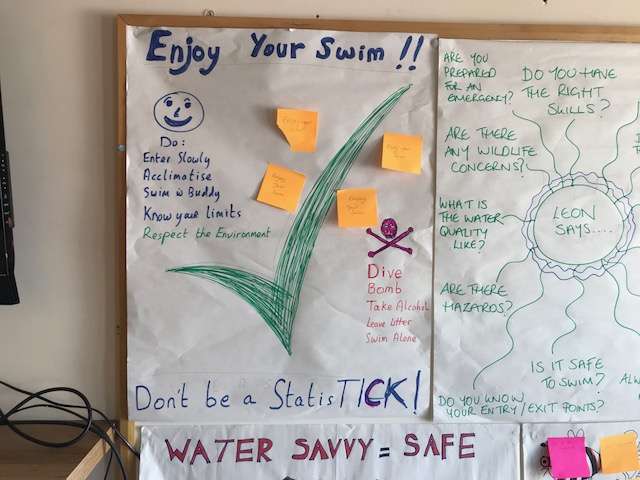 Enjoy Your Swim !!
Do:
Enter Slowly
Acclimatise
Swim w Buddy
Know your limits
Respect the Environment
Dive
Bomb
Take Alcohol
Leave Litter
Swim Alone
Don't be a StatisTICK!
ARE YOU
PREPARED
FOR AN
EMERGENCY?
DO YOU HAVE
THE RIGHT
SKILLS?
ARE THERE
ANY WILDLIFE
CONCERNS?
WHAT IS
THE WATER
QUALITY
LIKE?
LEON
SAYS.....
ARE THERE
HAZARDS?
IS IT SAFE
TO SWIM?
DO YOU KNOW
YOUR ENTRY/EXIT POINTS?
WATER SAVVY = SAFE